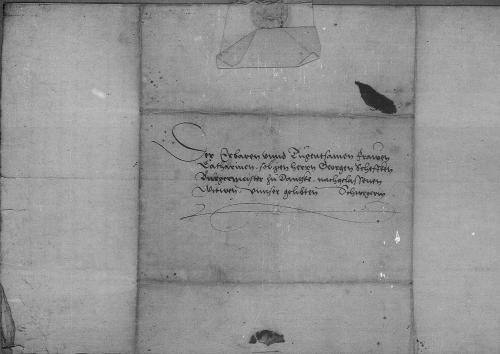 Der Erbaren vnnd Tugentsamen frawen
Catharinen, seligen herrn Georgen
Burgermeister zu nachgelassenen
Witwen, vnnser geliebten Schwegern